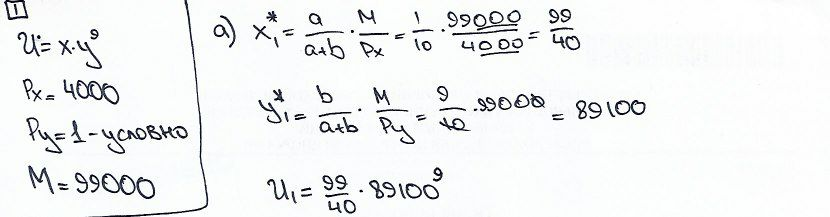 1
U = x·y⁹
Px = 4000
Py = 1 - условно
M = 99000
а) x₁* = a/(a+b) · M/Px = 1/10 · 99000/4000 = 99/40
y₁* = b/(a+b) · M/Py = 9/10 · 99000 = 89100
U₁ = 99/40 · 89100⁹